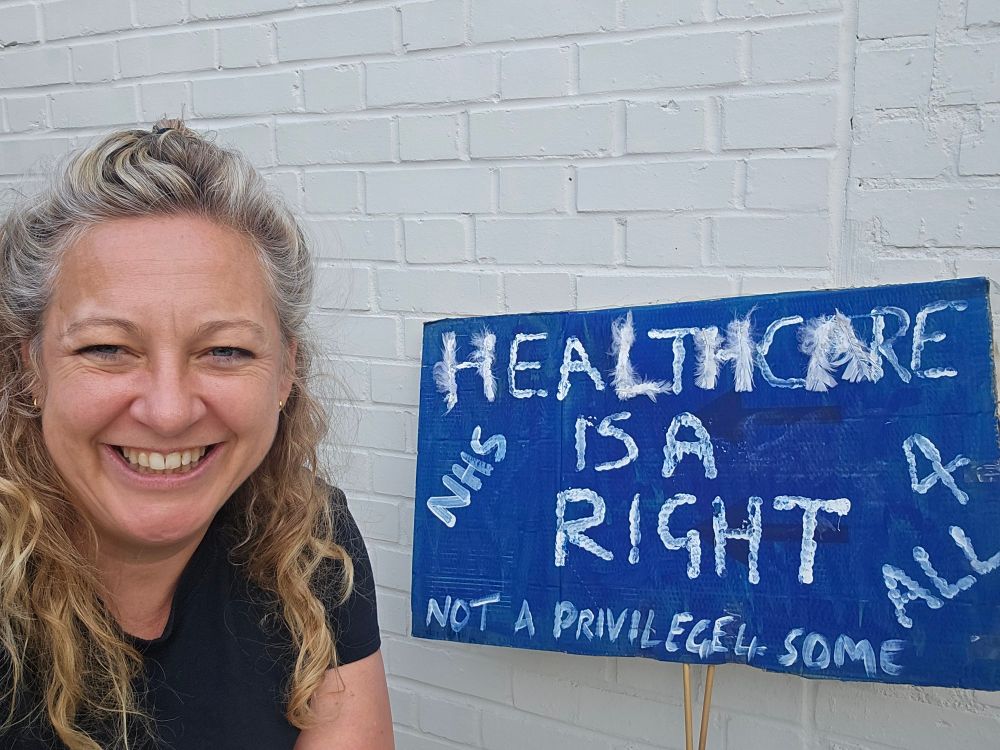 HEALTHCARE
IS A
RIGHT
NHS
4 ALL
NOT A PRIVILEGE 4 SOME